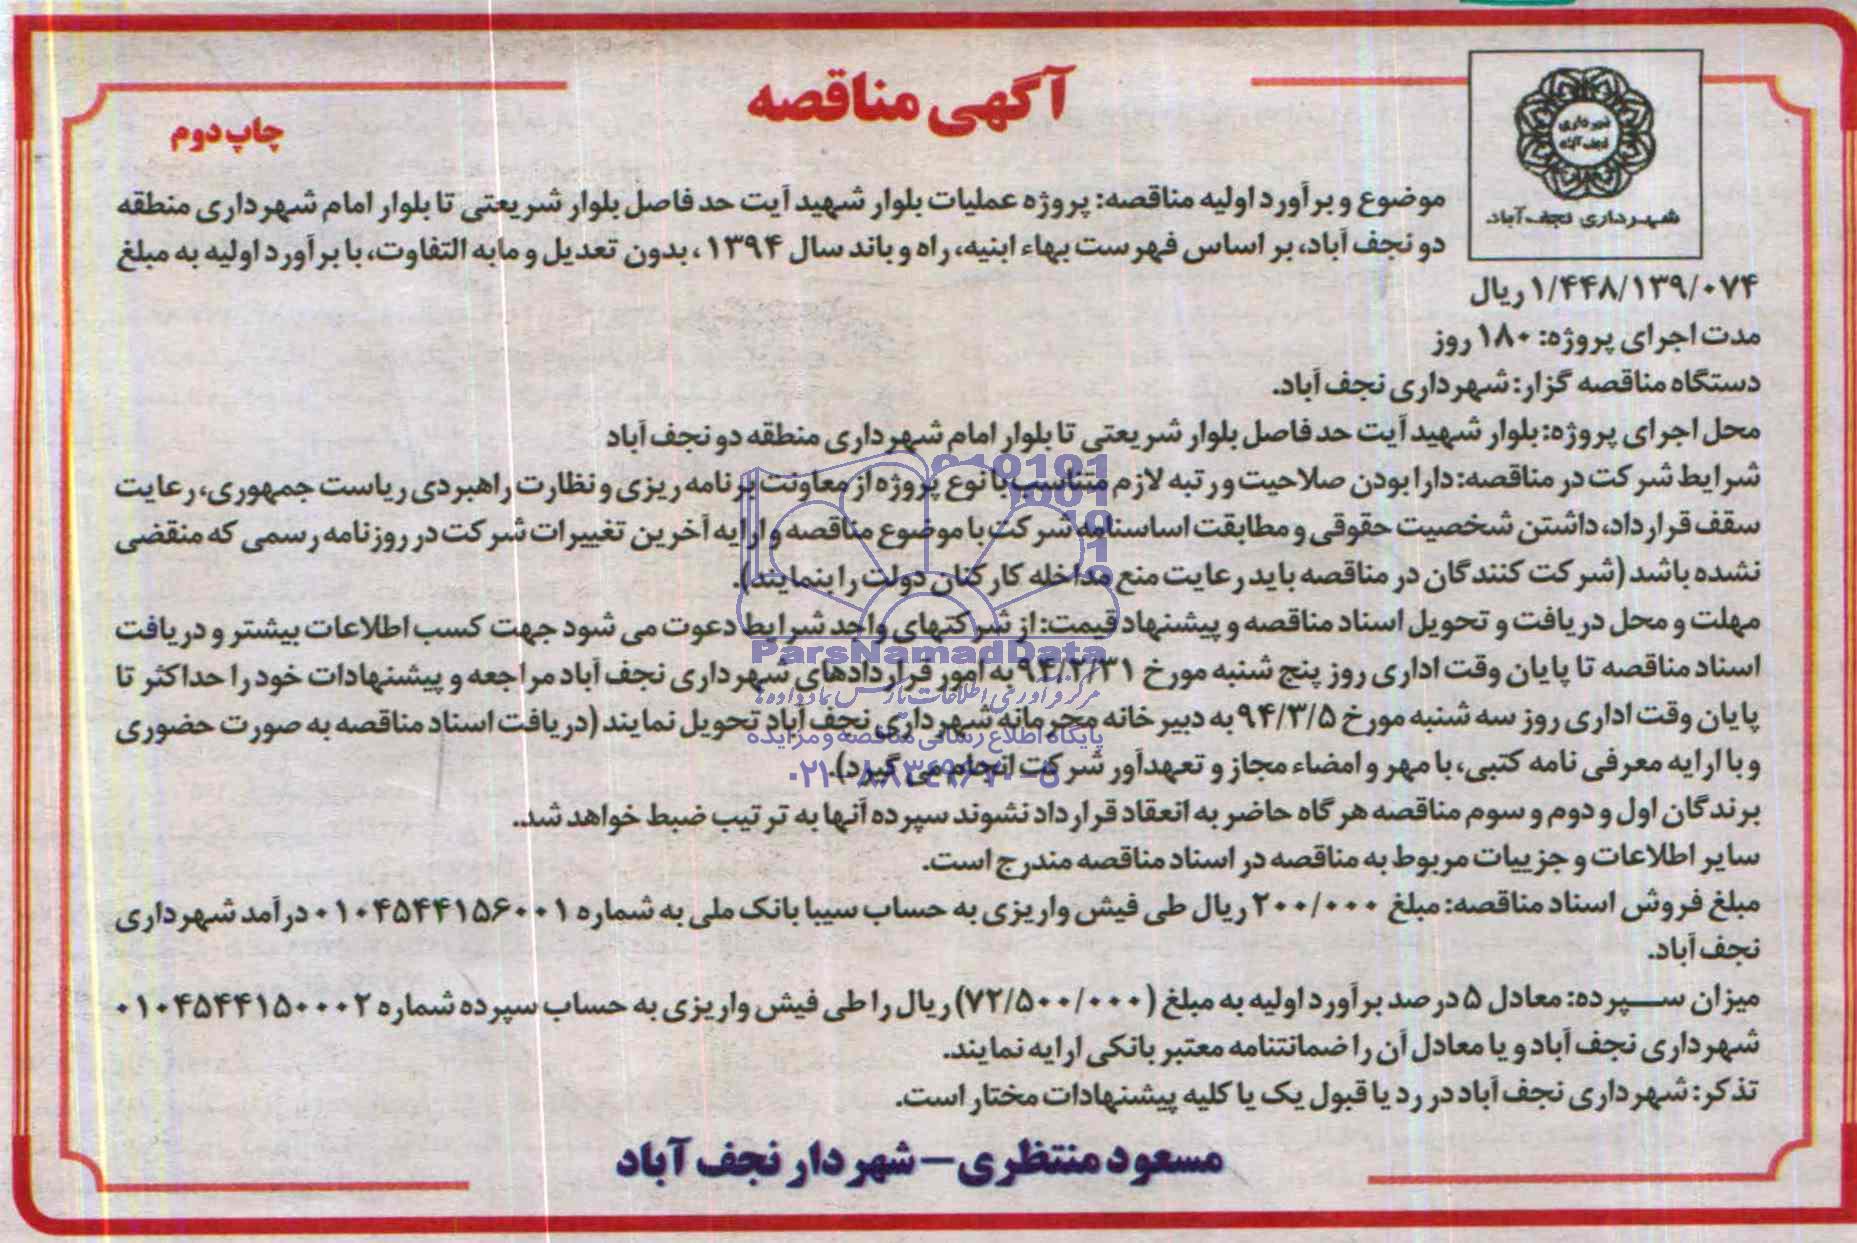 آگهی مناقصه
چاپ دوم
شهرداری نجف آباد
شهرداری نجف آباد
موضوع و برآورد اولیه مناقصه: پروژه عملیات بلوار شهید آیت حد فاصل بلوار شریعتی تا بلوار امام شهرداری منطقه
دو نجف آباد، بر اساس فهرست بهاء ابنیه، راه و باند سال ۱۳۹۴ ، بدون تعدیل و مابه التفاوت، با برآورد اولیه به مبلغ
۱/۴۴۸/۱۳۹/۰۷۴ ریال
مدت اجرای پروژه: ۱۸۰ روز
دستگاه مناقصه گزار: شهرداری نجف آباد.
محل اجرای پروژه: بلوار شهید آیت حد فاصل بلوار شریعتی تا بلوار امام شهرداری منطقه دو نجف آباد
شرایط شرکت در مناقصه: دارا بودن صلاحیت و رتبه لازم متناسب با نوع پروژه از معاونت برنامه ریزی و نظارت راهبردی ریاست جمهوری، رعایت
سقف قرارداد، داشتن شخصیت حقوقی و مطابقت اساسنامه شرکت با موضوع مناقصه و ارایه آخرین تغییرات شرکت در روزنامه رسمی که منقضی
نشده باشد (شرکت کنندگان در مناقصه باید رعایت منع مداخله کارکنان دولت را بنمایند).
مهلت و محل دریافت و تحویل اسناد مناقصه و پیشنهاد قیمت: از شرکتهای واجد شرایط دعوت می شود جهت کسب اطلاعات بیشتر و دریافت
اسناد مناقصه تا پایان وقت اداری روز پنج شنبه مورخ ۹۴/۲/۳۱ به امور قراردادهای شهرداری نجف آباد مراجعه و پیشنهادات خود را حداکثر تا
پایان وقت اداری روز سه شنبه مورخ ۹۴/۳/۵ به دبیرخانه محرمانه شهرداری نجف آباد تحویل نمایند (دریافت اسناد مناقصه به صورت حضوری
و با ارایه معرفی نامه کتبی، با مهر و امضاء مجاز و تعهدآور شرکت انجام می گیرد).
برندگان اول و دوم و سوم مناقصه هر گاه حاضر به انعقاد قرارداد نشوند سپرده آنها به ترتیب ضبط خواهد شد.
سایر اطلاعات و جزییات مربوط به مناقصه در اسناد مناقصه مندرج است.
مبلغ فروش اسناد مناقصه: مبلغ ۲۰۰/۰۰۰ ریال طی فیش واریزی به حساب سیبا بانک ملی به شماره ۰۱۰۴۵۴۴۱۵۶۰۰۱ درآمد شهرداری
نجف آباد.
میزان سپرده: معادل ۵ درصد برآورد اولیه به مبلغ (۷۲/۵۰۰/۰۰۰) ریال را طی فیش واریزی به حساب سپرده شماره ۰۱۰۴۵۴۴۱۵۰۰۰۲
شهرداری نجف آباد و یا معادل آن را ضمانتنامه معتبر بانکی ارایه نمایند.
تذکر: شهرداری نجف آباد در رد یا قبول یک یا کلیه پیشنهادات مختار است.
مسعود منتظری – شهردار نجف آباد
ParsNamadData
مرکز فرآوری اطلاعات پارس نماد داده ها
پایگاه اطلاع رسانی مناقصه و مزایده
۰۲۱-۸۸۳۴۹۶۷۰-۵